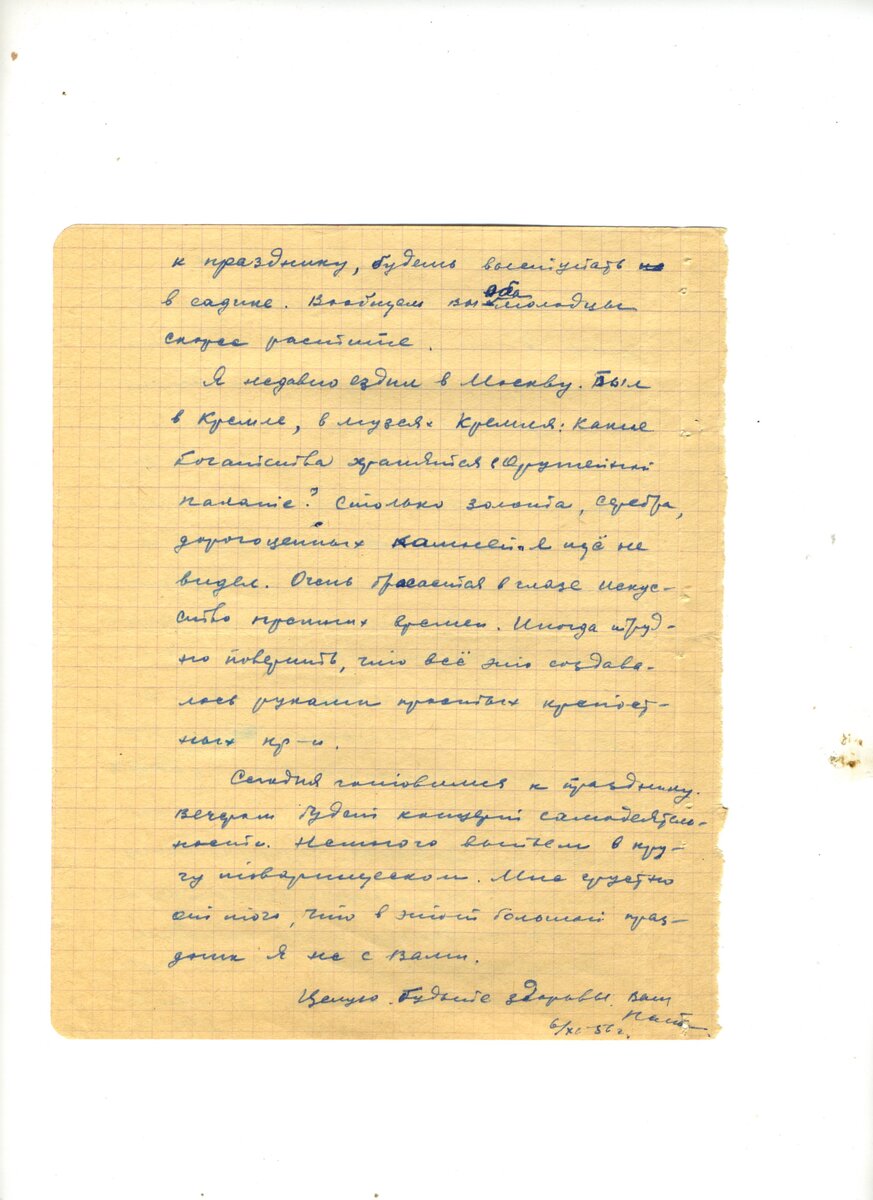 к празднику, будешь выступать
в садике. Вообщем вы оба молодцы
скорее растите.
Я недавно ездил в Москву. Был
в Кремле, в музеях Кремля: Какие
богатства хранятся в Оружейной
палате? Столько золота, серебра,
дорогоценных камней я ещё не
видел. Очень бросается в глаза искус-
ство времен. Иногда труд-
но поверить, что всё это создава-
лось руками простых крепост-
ных кр-н.
Сегодня готовимся к празднику.
Вечером будет концерт самодеятель-
ности. Немного выпьем в кру-
гу товарищеском. Мне грустно
от того, что в этот большой праз-
дник я не с Вами.
Целую. будьте здоровы. Ваш
6/XI-56 г.